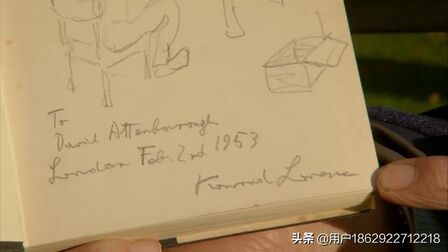 To
David Attenborough
London Feb. 2nd 1953
Konrad Lorenz
头条 @用户1862922712218